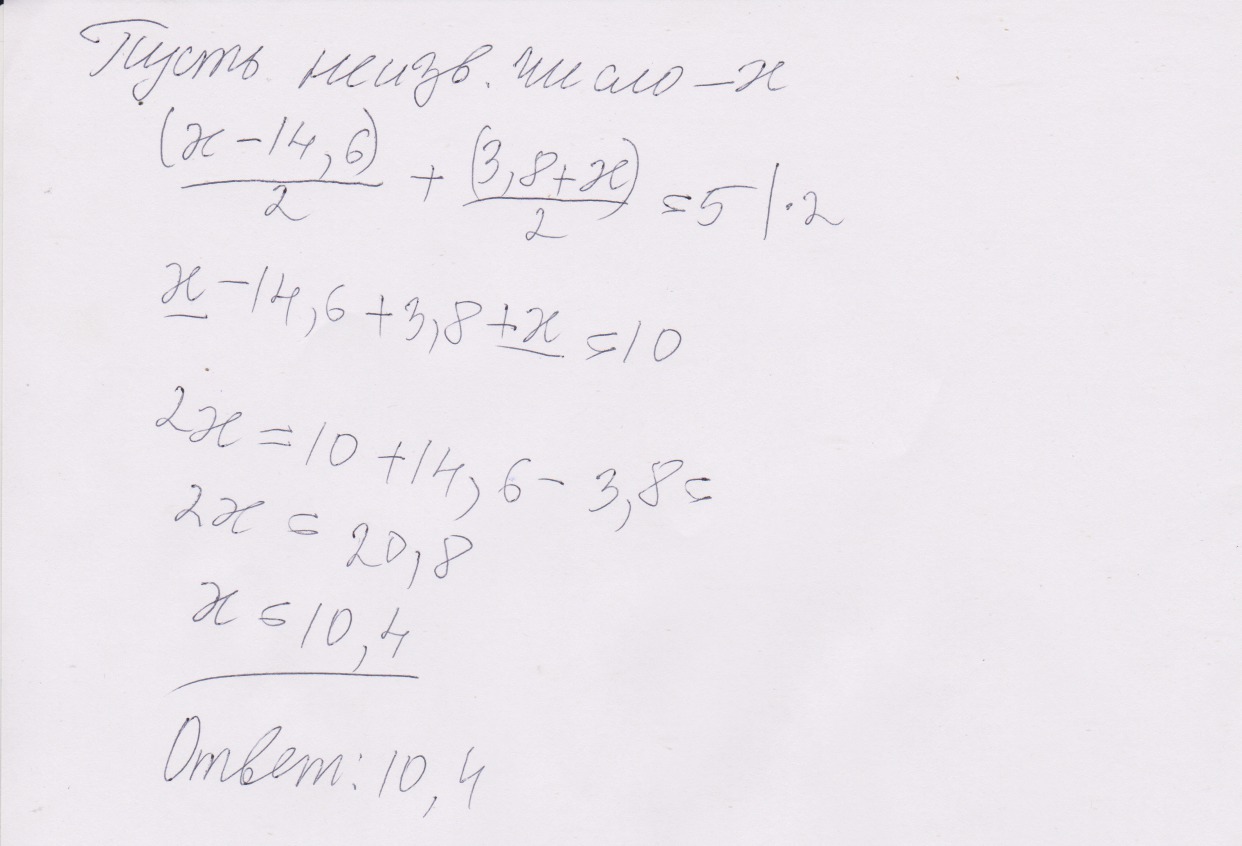 Пусть неизв. число – х
(х – 14,6)/2 + (3,8 + х)/2 = 5 | · 2
х – 14,6 + 3,8 + х = 10
2х = 10 + 14,6 – 3,8 =
2х = 20,8
х = 10,4
Ответ: 10,4